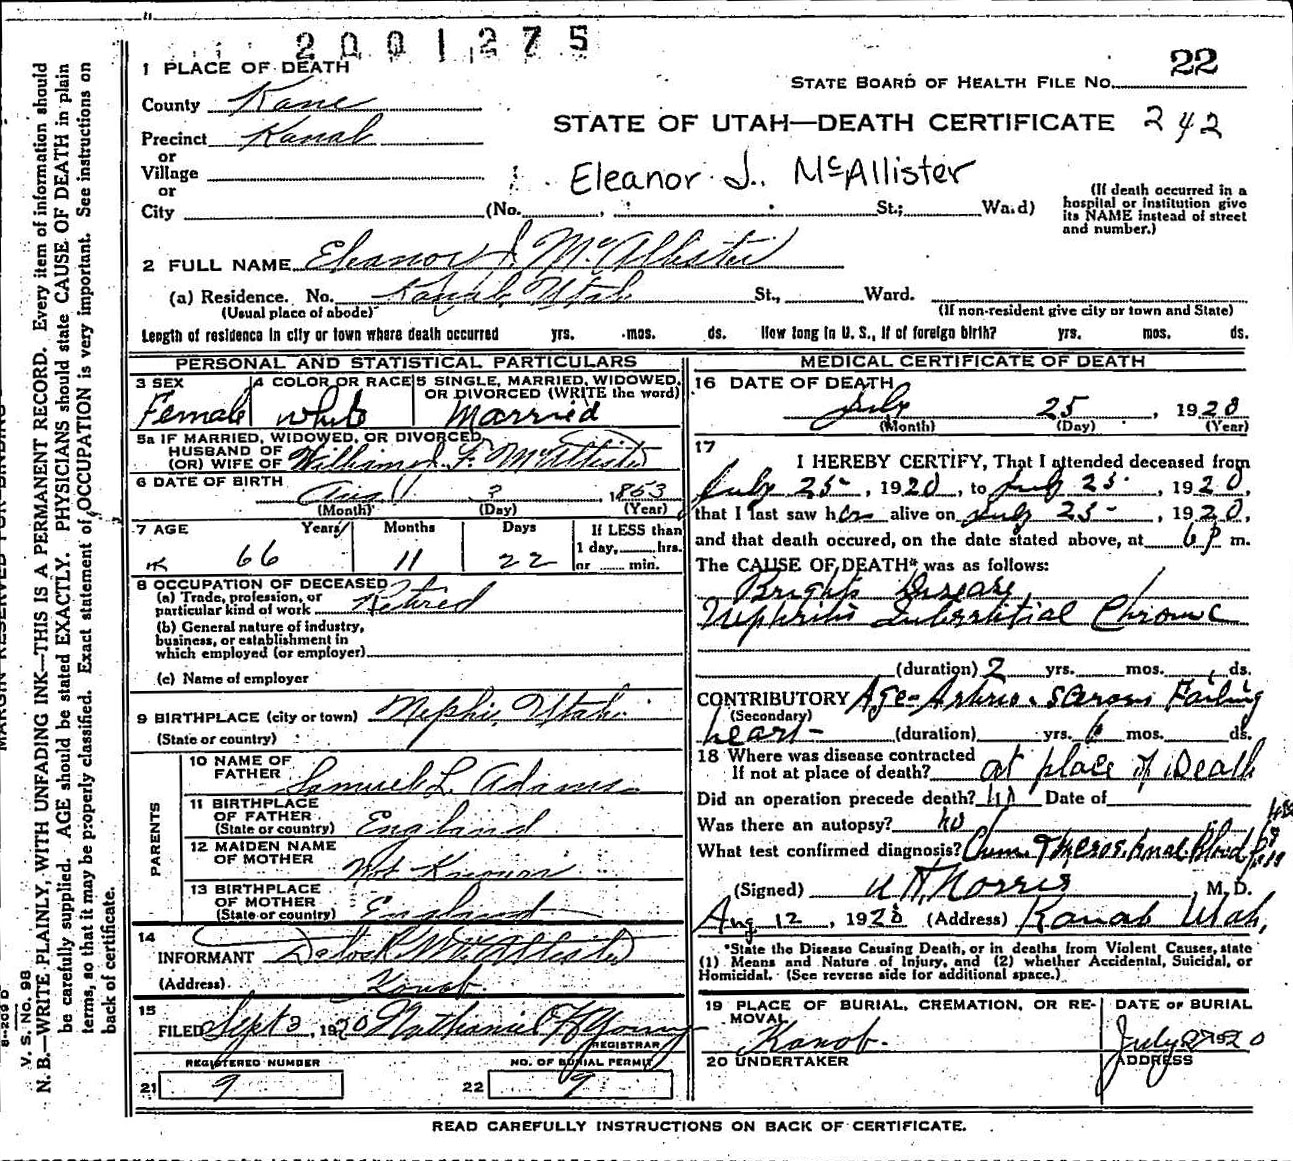 2001275
22
1 PLACE OF DEATH
STATE BOARD OF HEALTH FILE NO.
County Kane
STATE OF UTAH—DEATH CERTIFICATE 242
Precinct Kanab
or
Village
Eleanor J. McAllister
or
City (No. , St.; Ward)
(If death occurred in a
hospital or institution give
its NAME instead of street
and number.)
2 FULL NAME Eleanor J. McAllister
(a) Residence. No. Kanab, Utah St., Ward.
(Usual place of abode)
(If non-resident give city or town and State)
Length of residence in city or town where death occurred yrs. mos. ds. How long in U. S., if of foreign birth? yrs. mos. ds.
PERSONAL AND STATISTICAL PARTICULARS
3 SEX 4 COLOR OR RACE 5 SINGLE, MARRIED, WIDOWED,
OR DIVORCED (WRITE the word)
Female white Married
5a IF MARRIED, WIDOWED, OR DIVORCED
HUSBAND OF
(OR) WIFE OF William J. F. McAllister
6 DATE OF BIRTH Aug 3 1853
(Month) (Day) (Year)
7 AGE Years Months Days If LESS than
1 day, hrs.
or min.
66 11 22
8 OCCUPATION OF DECEASED
(a) Trade, profession, or
particular kind of work Retired
(b) General nature of industry,
business, or establishment in
which employed (or employer)
(c) Name of employer
9 BIRTHPLACE (city or town) Nephi, Utah.
(State or country)
PARENTS
10 NAME OF
FATHER Samuel L. Adams
11 BIRTHPLACE
OF FATHER
(State or country) England
12 MAIDEN NAME
OF MOTHER Not Known
13 BIRTHPLACE
OF MOTHER
(State or country) England
14
INFORMANT McAllister
(Address) Kanab
15
FILED Sept 3, 1920 Nathaniel Young
REGISTRAR
REGISTERED NUMBER NO. OF BURIAL PERMIT
21 9 22 9
MEDICAL CERTIFICATE OF DEATH
16 DATE OF DEATH
July 25, 1920
(Month) (Day) (Year)
17
I HEREBY CERTIFY, That I attended deceased from
July 25, 1920, to July 25, 1920,
that I last saw her alive on July 25, 1920,
and that death occured, on the date stated above, at 6 p m.
The CAUSE OF DEATH* was as follows:
Brights Disease
Nephritis Interstitial Chronic
(duration) 2 yrs. mos. ds.
CONTRIBUTORY Age- Failing
(Secondary)
heart- (duration) yrs. 6 mos. ds.
18 Where was disease contracted
If not at place of death? at place of Death
Did an operation precede death? no Date of
Was there an autopsy? no
What test confirmed diagnosis? Blood
(Signed) Norris, M. D.
Aug 12, 1920 (Address) Kanab Utah,
*State the Disease Causing Death, or in deaths from Violent Causes, state
(1) Means and Nature of Injury, and (2) whether Accidental, Suicidal, or
Homicidal. (See reverse side for additional space.)
19 PLACE OF BURIAL, CREMATION, OR RE-
MOVAL DATE OF BURIAL
Kanab. July 27 1920
20 UNDERTAKER ADDRESS
READ CAREFULLY INSTRUCTIONS ON BACK OF CERTIFICATE.
MARGIN RESERVED FOR BINDING
V. S.—No. 98
N. B.—WRITE PLAINLY, WITH UNFADING INK—THIS IS A PERMANENT RECORD. Every item of information should
be carefully supplied. AGE should be stated EXACTLY. PHYSICIANS should state CAUSE OF DEATH in plain
terms, so that it may be properly classified. Exact statement of OCCUPATION is very important. See instructions on
back of certificate.